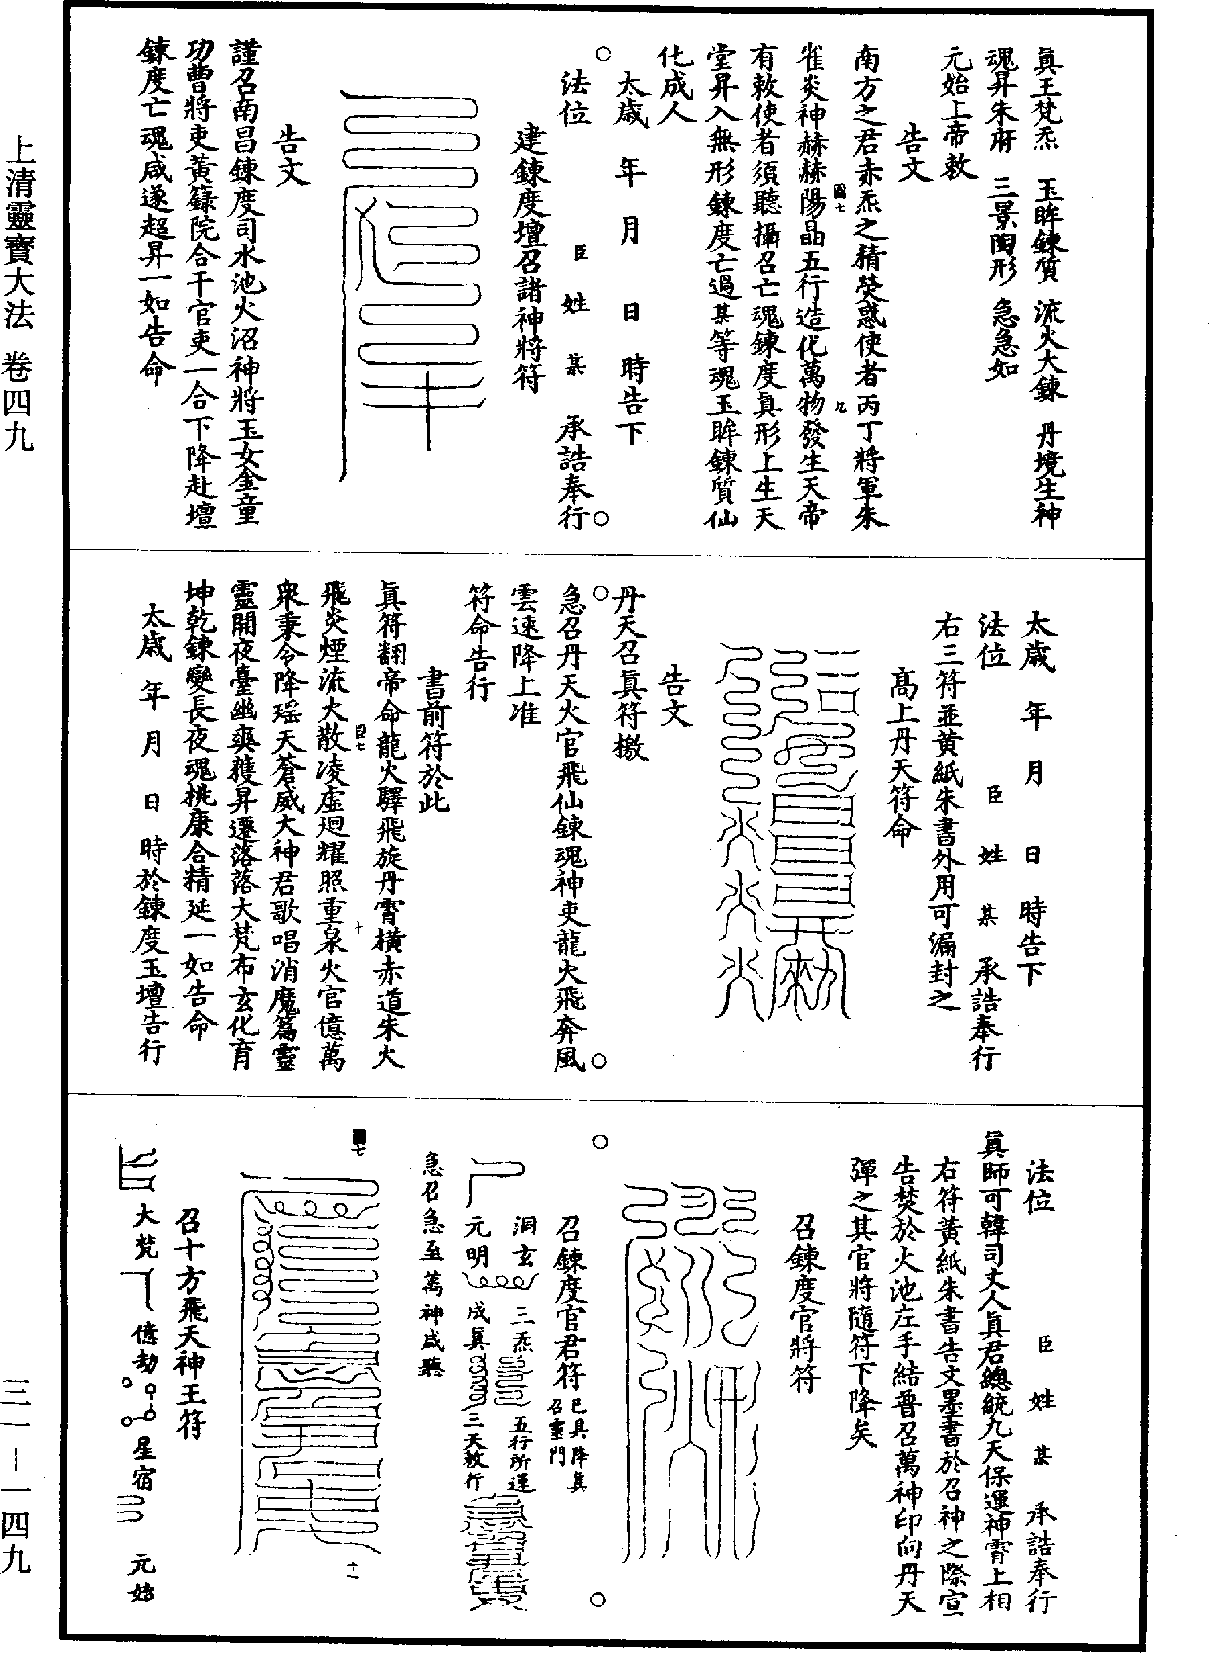 上清靈寶大法 卷四九
三一－一四九
眞王梵炁 玉眸鍊質 流火大鍊 丹境生神
魂昇朱府 三景陶形 急急如
元始上帝敕
告文
南方之君赤炁之精熒惑使者丙丁將軍朱
雀炎神赫赫陽晶五行造化萬物發生天帝
有敕使者須聽攝召亡魂鍊度眞形上生天
堂昇入無形鍊度亡過某等魂玉眸鍊質仙
化成人
太歲 年 月 日 時告下
法位 臣 姓 某 承誥奉行
建鍊度壇召諸神將符
告文
謹召南昌鍊度司水池火沼神將玉女金童
功曹將吏黃籙院合干官吏一合下降赴壇
鍊度亡魂咸遂超昇一如告命
太歲 年 月 日 時告下
法位 臣 姓 某 承誥奉行
右三符並黃紙朱書外用可漏封之
高上丹天符命
告文
丹天召眞符檄
急召丹天火官飛仙鍊魂神吏龍火飛奔風
雲速降上准
符命告行
書前符於此
眞符翻帝命龍火驛飛旋丹霄橫赤道朱火
飛炎煙流大散凌虛廻耀照重泉火官億萬
衆秉令降瑶天蒼威大神君歌唱消魔篇靈
靈開夜臺幽爽獲昇遷落落大梵布玄化育
坤乾鍊變長夜魂桃康合精延一如告命
太歲 年 月 日 時於鍊度玉壇告行
法位 臣 姓 某 承誥奉行
眞師可韓司丈人眞君總統九天保運神霄上相
右符黃紙朱書告文墨書於召神之際宣
告焚於火池左手結普召萬神印向丹天
彈之其官將隨符下降矣
召鍊度官將符
召鍊度官君符 已具降眞召靈門
洞玄 三炁 五行所運
元明 成眞 三天敕行
急召急至 萬神咸聽
召十方飛天神王符
大梵 億劫 星宿 元始